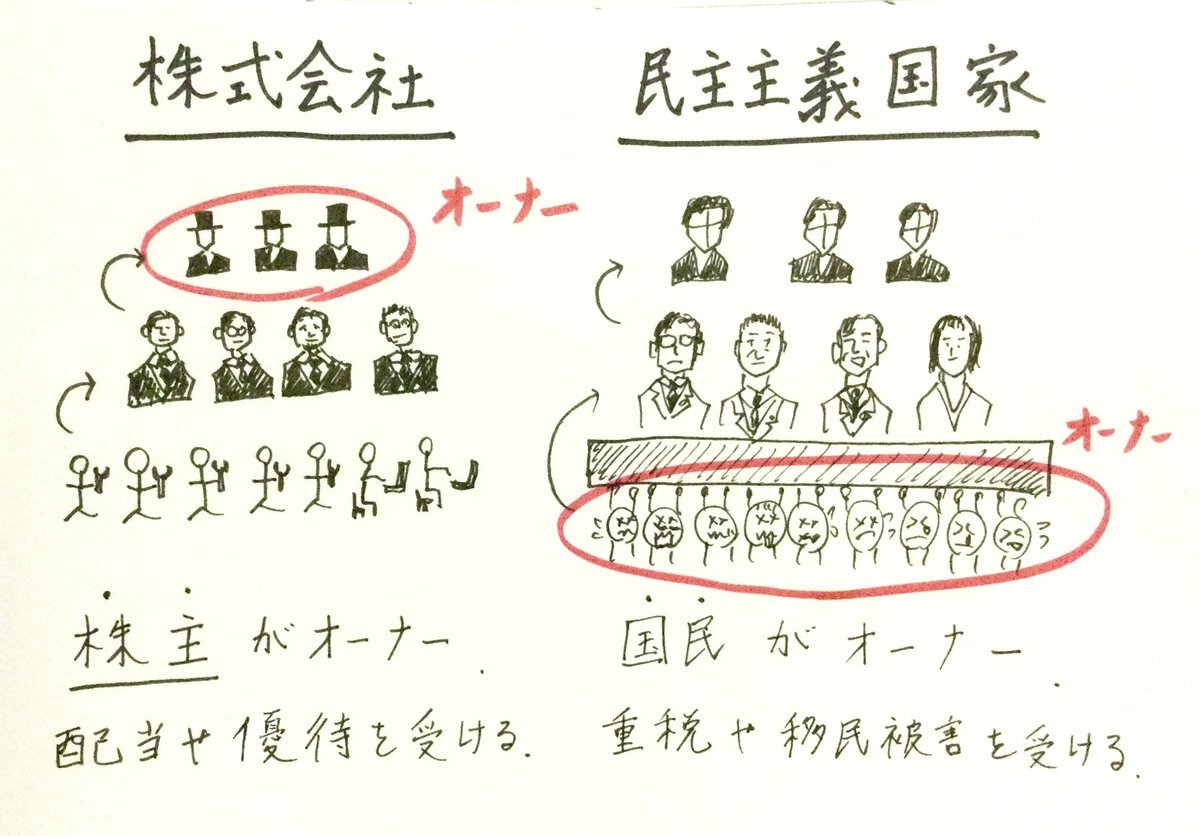 株式会社
オーナー
株主がオーナー.
配当や優待を受ける.
民主主義国家
オーナー
国民がオーナー.
重税や移民被害を受ける.